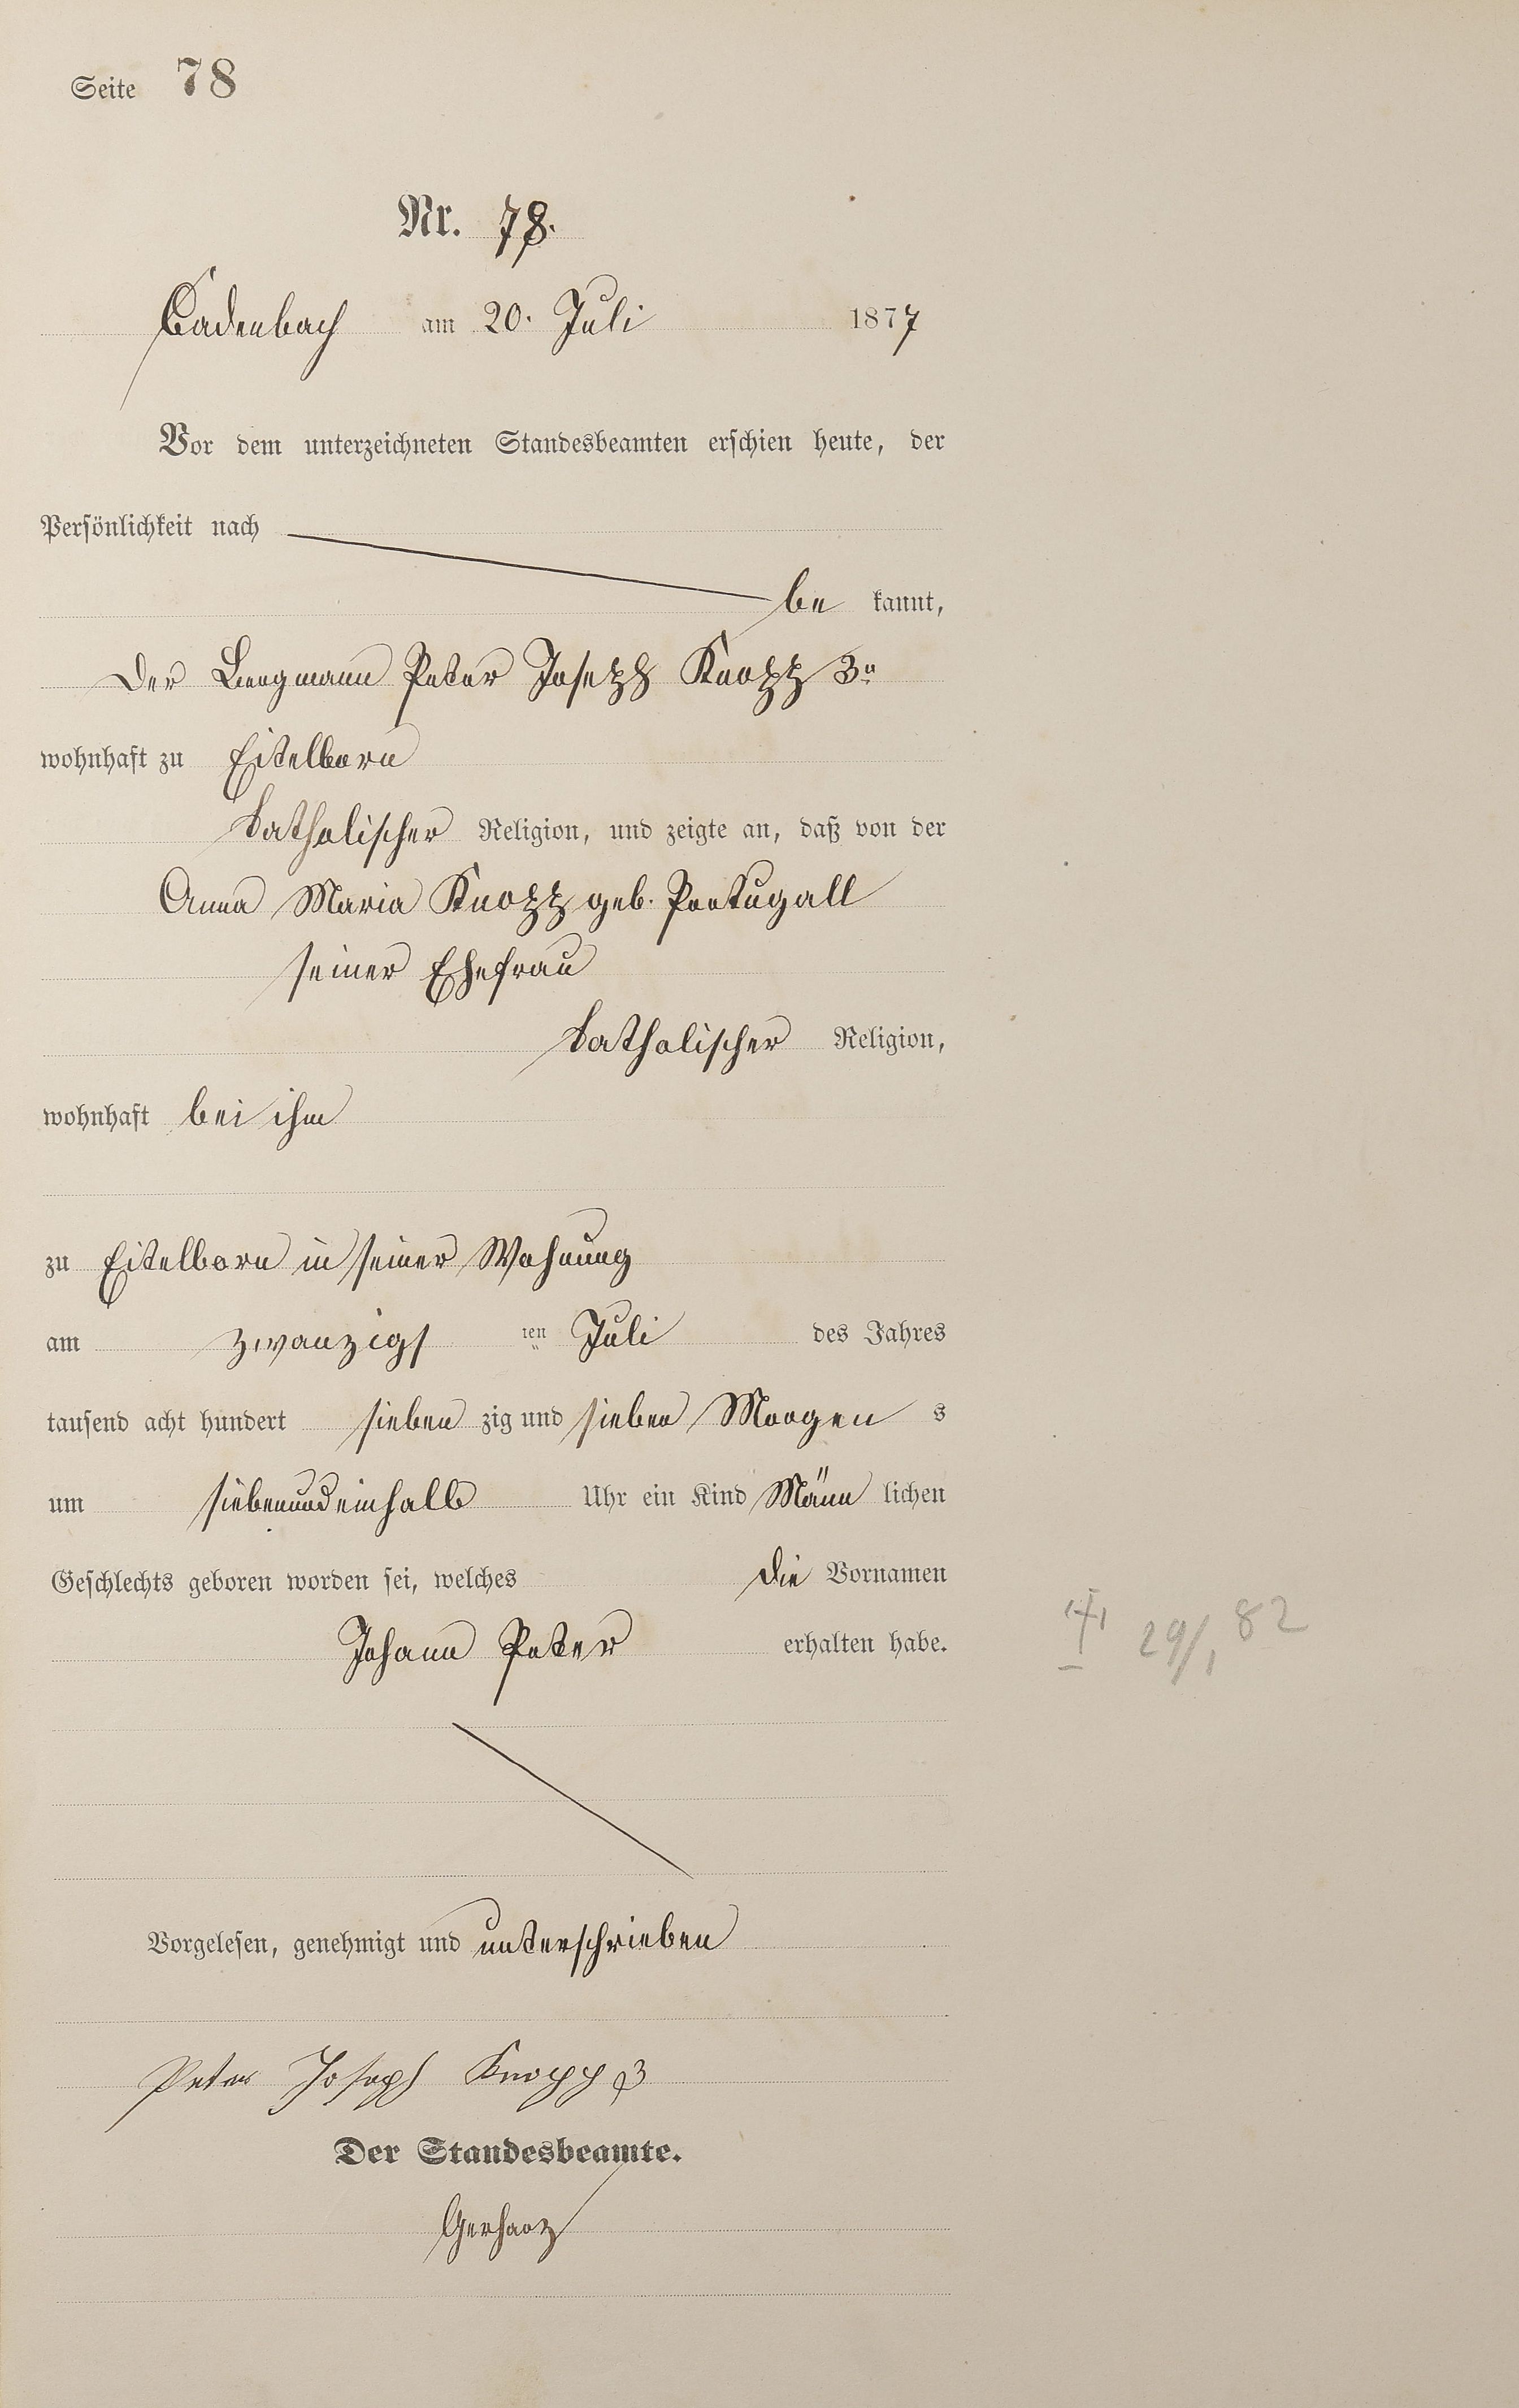 Seite 78
Nr. 78.
Cadenbach am 20. Juli 1877
Vor dem unterzeichneten Standesbeamten erschien heute, der
Persönlichkeit nach
be kannt,
Der Bergmann Peter Joseph Knopp 3r
wohnhaft zu Eitelborn
katholischer Religion, und zeigte an, daß von der
Anna Maria Knopp geb. Portugall
seiner Ehefrau
katholischer Religion,
wohnhaft bei ihm
zu Eitelborn in seiner Wohnung
am zwanzigs ten Juli des Jahres
tausend acht hundert sieben zig und sieben Morgen s
um siebenundeinhalb Uhr ein Kind Männ lichen
Geschlechts geboren worden sei, welches die Vornamen
Johann Peter erhalten habe.
29/1 82
Vorgelesen, genehmigt und unterschrieben
Peter Joseph Knopp 3
Der Standesbeamte.
Gerharz